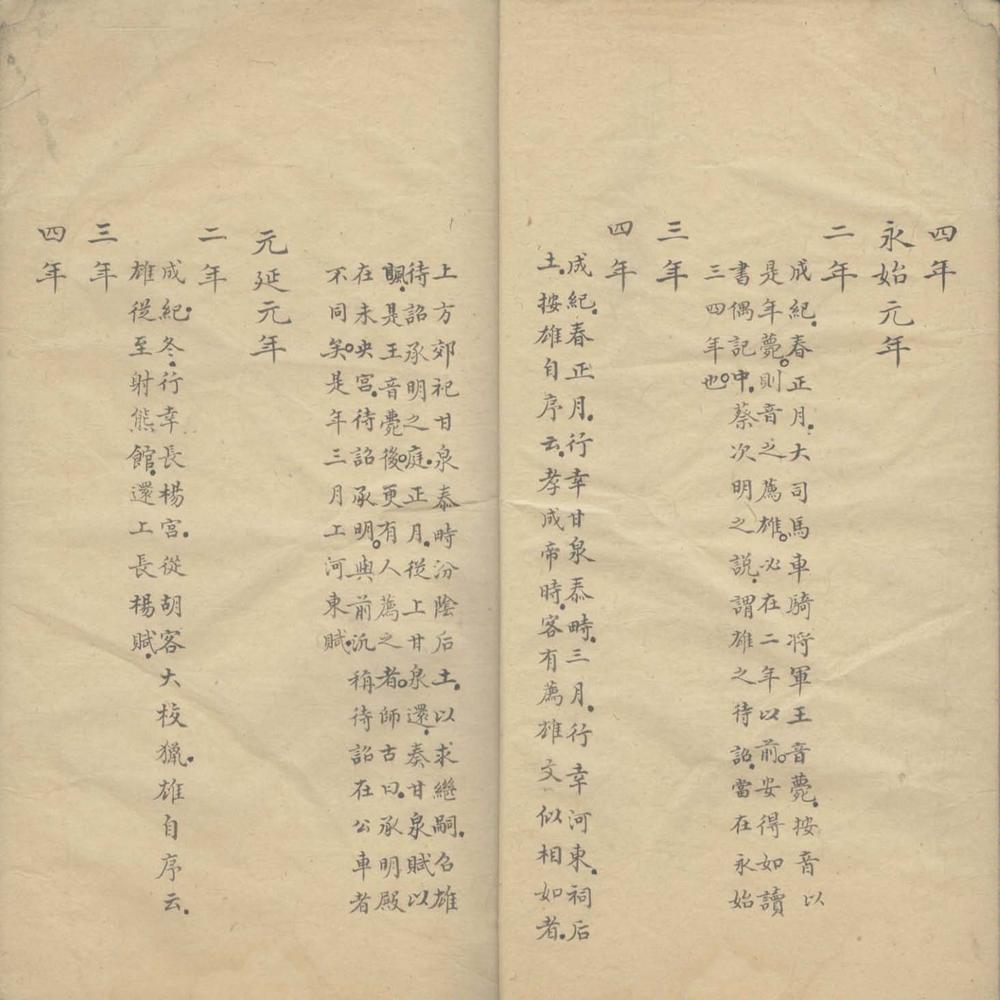 四年
永始元年
二年
成紀春正月大司馬車騎將軍王音薨按音以
是年薨則音之薦雄必在二年以前安得如讀
書偶記中蔡次明之說謂雄之待詔當在永始
三四年也
三年
四年
成紀春正月行幸甘泉泰畤三月行幸河東祠后
土按雄自序云孝成帝時客有薦雄文似相如者
上方郊祀甘泉泰時汾陰后土以求繼嗣召雄
待詔承明之庭正月從上甘泉還奏甘泉賦以
風是王音薨後更有人薦之者師古曰承明殿
在未央宮待詔承明與前汎稱待詔在公車者
不同矣是年三月上河東賦
元延元年
二年
成紀冬行幸長楊宮從胡客大校獵雄自序云
雄從至射熊館還上長楊賦
三年
四年